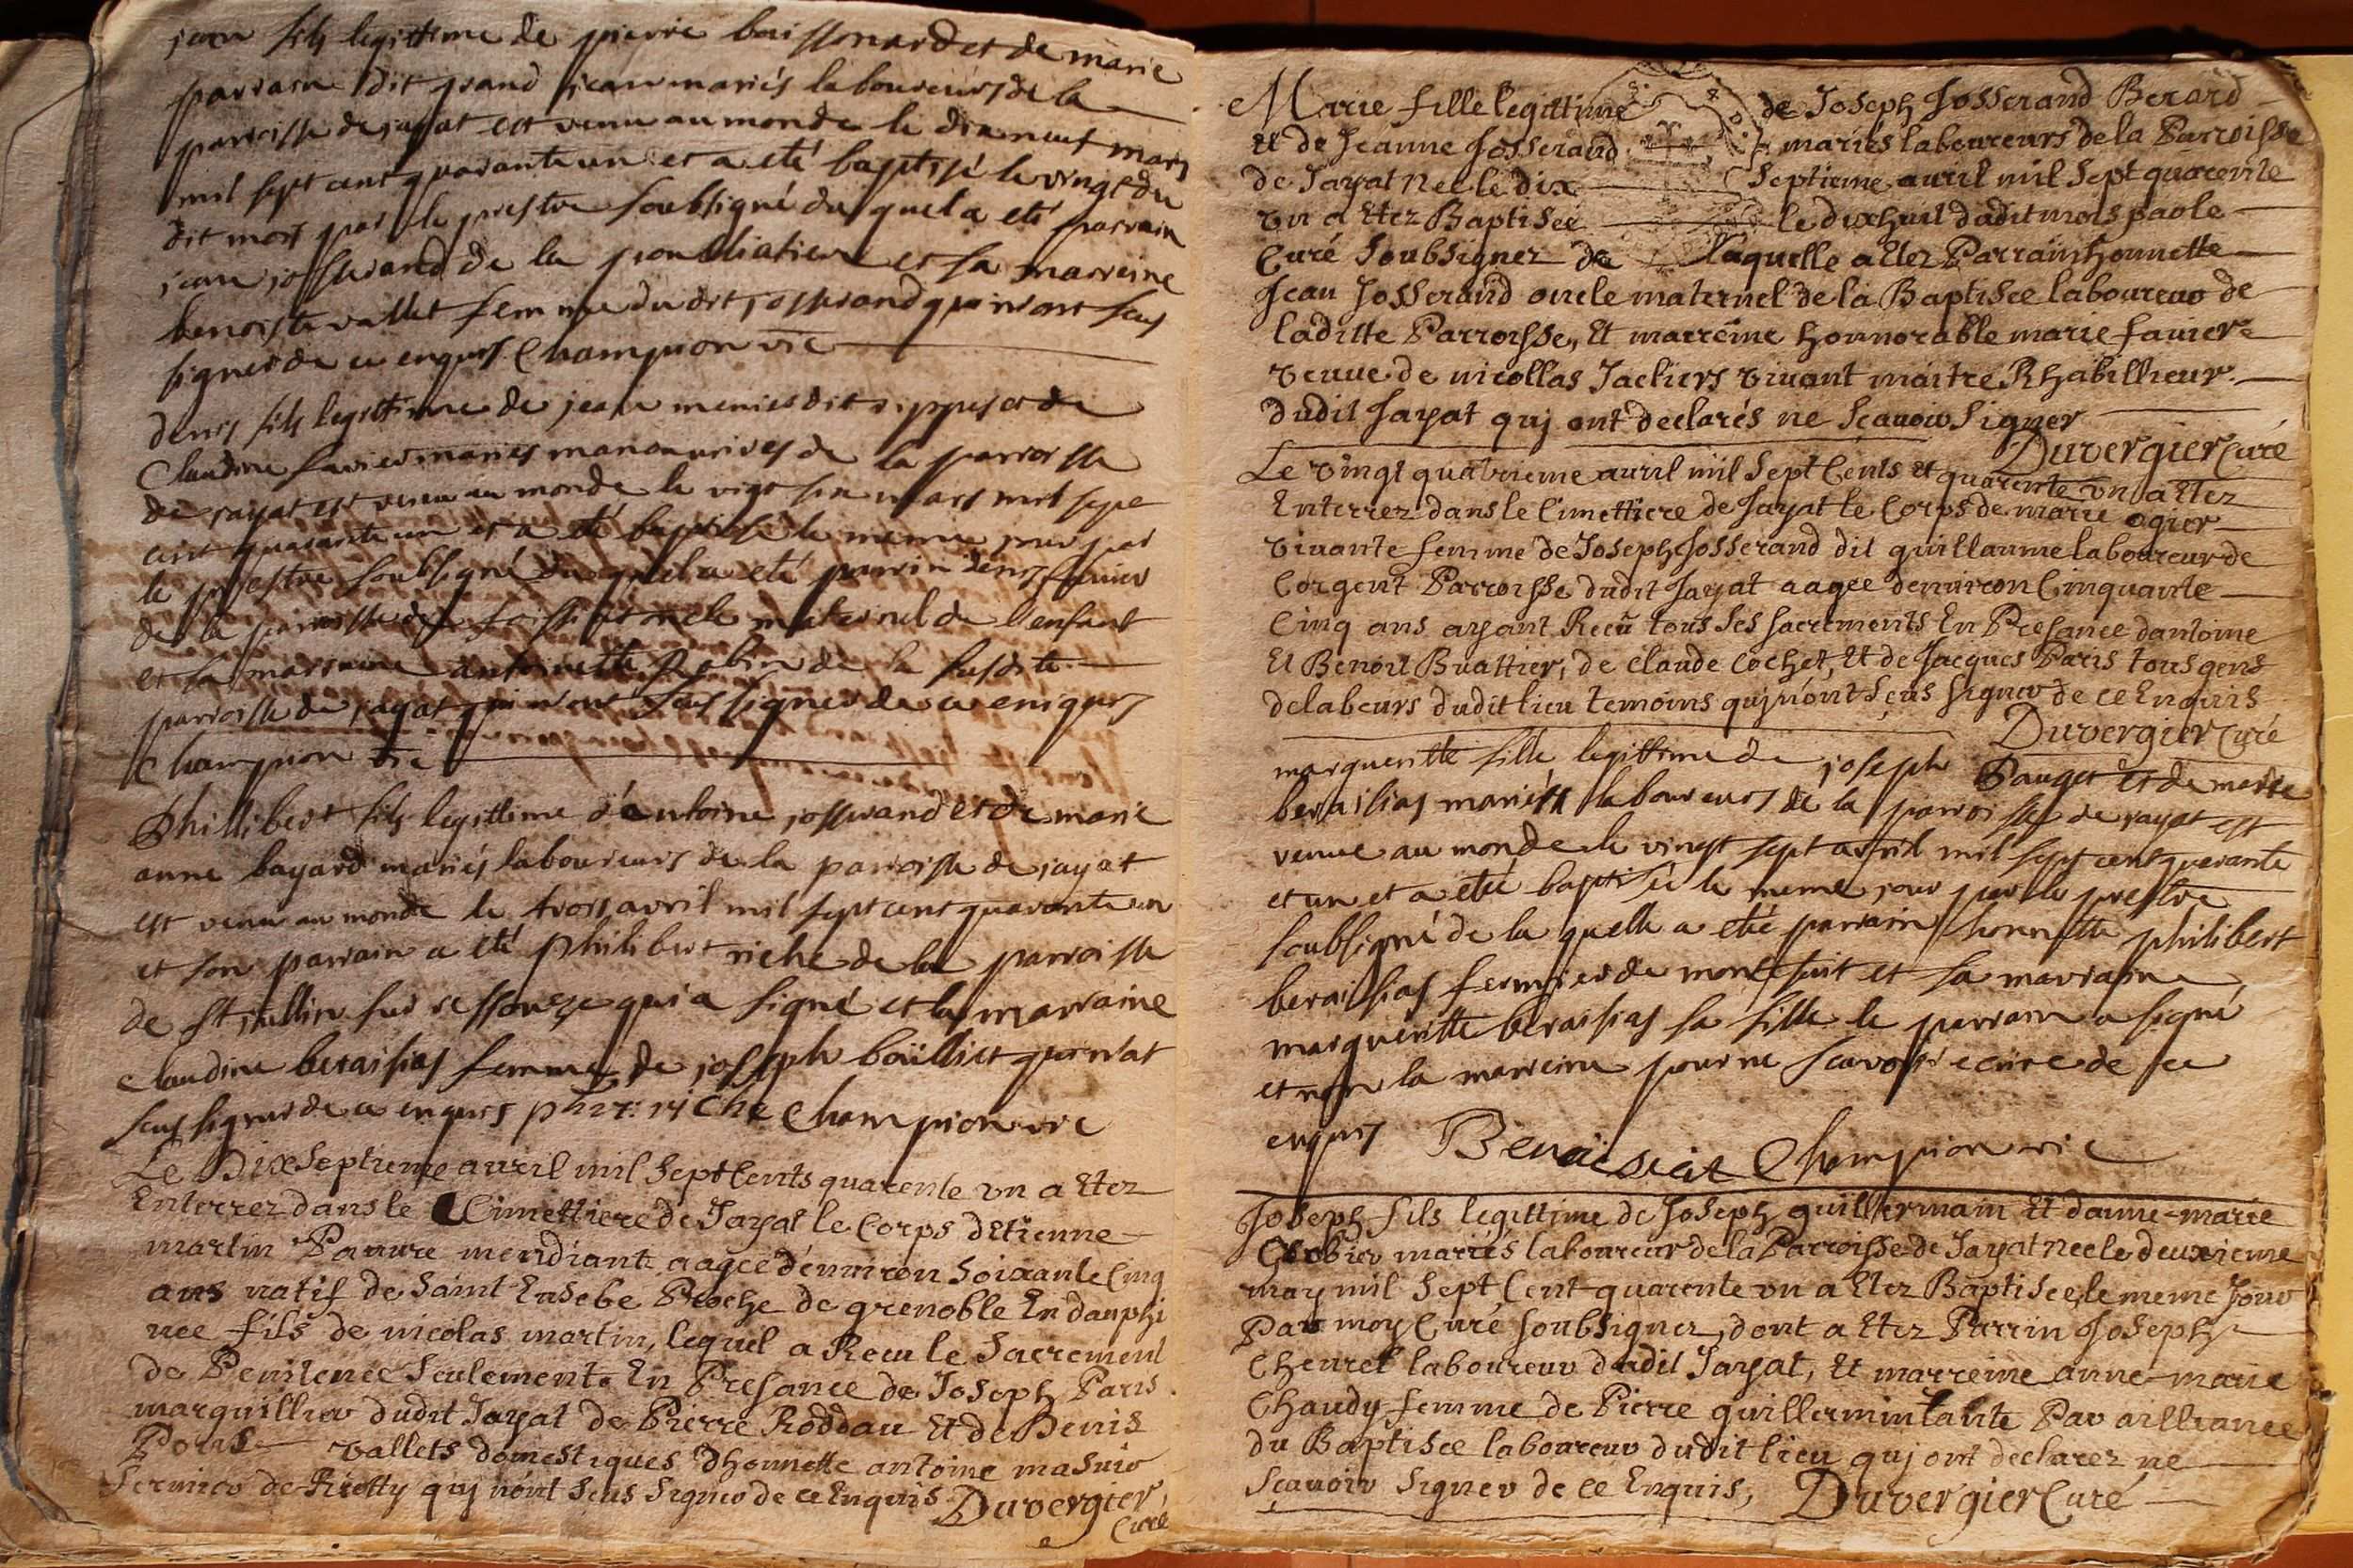 jean fils legittime de pierre buissonard et de marie
parrain dit grand jean mariés laboureurs de la
parroisse de jayat est venu au monde le dixneuf mars
mil sept cent quarante un et a eté baptisé le vingt du
dit mois par le prestre soubsigné duquel a eté parrain
jean josserand de la et sa marreine
benoiste vallet femme du dit josserand qui n'ont sçeus
signer de ce enquis Champion vic
denis fils legittime de jean menier dit et de
Claudine favier mariés manouvrives de la parroisse
de jayat est venu au monde le vigt six mars mil sept
cent quarante un et a eté baptisé le meme jour par
le prestre soubsigné duquel a eté parrin denis favier
de la parroisse de foissiat oncle maternel de l'enfant
et sa marraine antoinette Robin de la susdite
parroisse de jayat qui n'ont sçeus signer de ce enquis
Champion vic
Phillibert fils legittime d'antoine josserand et de marie
anne bayard mariés laboureurs de la parroisse de jayat
est venu au monde le trois avril mil sept cent quarante un
et son parrain a eté philibert riche de la parroisse
de St jullin sur ressouze qui a signé et la marraine
claudine beraisias femme de joseph boüillet qui n'at
sceus signer de ce enquis ph riche Champion vic
Le Dixseptieme auril mil Sept Cents quarente vn a Etez
Enterrez dans le Cimettiere de Jayat le Corps dEtienne
martin Pauure mendiant aagee d'enuiron Soixante Cinq
ans natif de Saint Ensebe Proche de grenoble En dauphi
nee fils de nicolas martin, lequel a Recu le Sacrement
de Penitence Seulement. En Presance de Joseph Paris
marguillier dudit Jayat de Pierre Roddau Et de Denis
Ponse vallets domestiques d'honnette antoine masuir
fermier de Rietty quj n'ont Sçus Signer de ce Enquis Duvergier
Curé
Marie fille legittime de Joseph Josserand Berard
Et de Jeanne Josserand mariés laboureurs de la Parroisse
de Jayat Nee le dix Septieme auril mil Sept quarente
vn a Etez Baptisée le dixhuit dudit mois par le
Curé Soubsignez de laquelle a Etez Parrain honnette
Jean Josserand oncle maternel de la Baptisee laboureur de
laditte Parroisse, Et marreine honnorable marie fauier
veuue de nicollas Jacliers viuant maitre Rhabillieur
dudit Jayat quj ont declarés ne Sçauoir Signer
Duvergier Curé
Le vingt quatrieme auril mil Sept Cents et quarente vn a Etez
Enterrez dans le Cimettiere de Jayat le Corps de marie ogier
viuante femme de Joseph Josserand dit guillaume laboureur de
Corgent Parroisse dudit Jayat aagee denuiron Cinquante
Cinq ans ayant Reçu tous Ses Sacrements En Presance dantoine
Et Benoit Buattier, de Claude Cochet, Et de Jacques Paris tous gens
delabeurs dudit lieu temoins quj n'ont Sçus Signer de ce Enquis
Duvergier Curé
marguerite fille legittime de joseph Pauget et de marie
beraisias mariés laboureurs de la parroisse de jayat est
venue au monde le vingt sept avril mil sept cent quarante
et un et a eté baptisée le meme jour par le prestre
soubsigné de la quelle a eté parrain honnette philibert
beraisias fermier de montsuit et sa marraine
marguerite beraisias sa fille le parrain a signé
et non la marreine pour ne scavoir ecrire de ce
enquis Beraisiat Champion vic
Joseph fils legittime de Joseph guillermain Et danne-marie
Gerbier mariés laboureur de la Parroisse de Jayat nee le deuxieme
may mil Sept Cent quarente vn a Etez Baptisee, le meme Jour
Par moy Curé Soubsignez, dont a Etez Parrin Joseph
Cheuret laboureur dudit Jayat, Et marreine anne-marie
Chaudy femme de Pierre guillermin tante Par ailliance
du Baptisee laboureur dudit lieu quj ont declarez ne
Sçauoir Signer de ce Enquis, Duvergier Curé